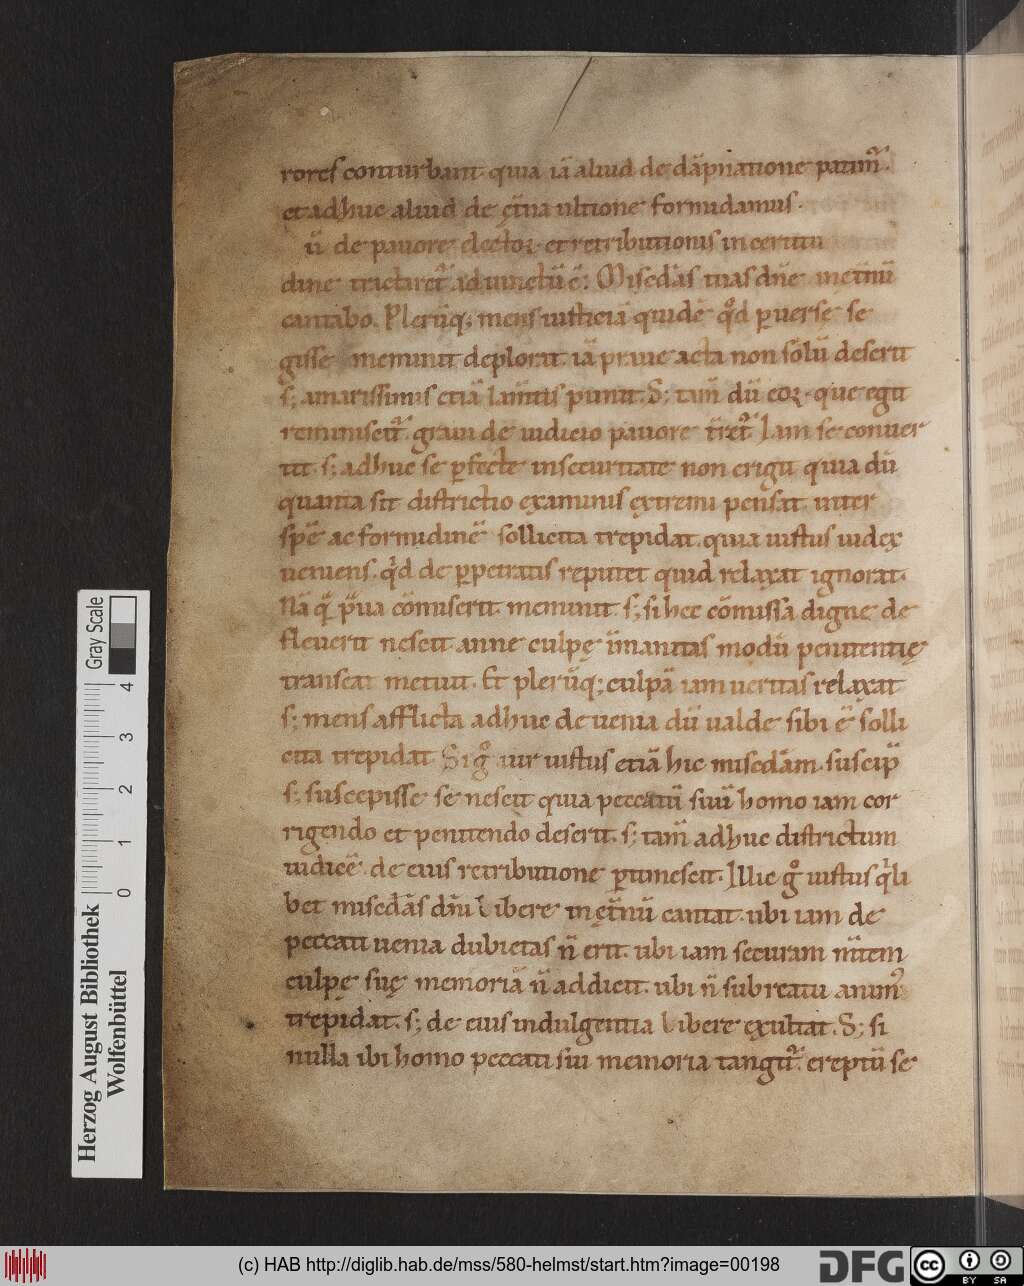 rores conturbant quia iā aliud de dāpnatione patim᷑.
et adhuc aliud de ęt̄na ultione formidamus.
ū de pauore elector᷑ et retributionis incertitu
dine tractaret᷑ adiunctū ē. Misc̄d̄as tuas dn̄e inet̄nū
cantabo. Plerūq; mens iusticiā quidē qd̊ ꝑuerse se
gisse meminit deplorat. iā praue acta non sōlū deserit
s; amarissimis etiā lam̄tis punit. S; tam̄ dū eoꝝ que egit
reminiscit᷑ graui de iudicio pauore t̄ret᷑. Jam se conuer
tit. s; adhuc se ꝑfecte in securitate non erigit quia dū
quanta sit districtio examinis extremi pensat. inter
spē ac formidinē sollicita trepidat. quia iustus iudex
ueniens. qd̍ de ꝑpetratis reputet quid relaxat ignorat.
Nā q̄ p̄ua cōmiserit meminit. s; si hec cōmissa digne de
fleuerit nescit. anne culpę īmanitas modū penitentię
transeat metuit. Et plerūq; culpā iam ueritas relaxat
s; mens afflicta adhuc de uenia dū ualde sibi ē solli
cita trepidat. Sig̊ iur iustus etiā hic misc̄dām suscip̄
s; suscepisse se nescit quia peccatū suū homo iam cor
rigendo et penitendo deserit. s; tam̄ adhuc districtum
iudicē de eius retributione ꝑtimescit. Illic g̊ iustus q̍li
bet misc̄dās dn̄i libere in ęt̄nū cantat. ubi iam de
peccati uenia dubietas n̄ erit. ubi iam securam m̄tem
culpę suę memoriā n̄ addicit. ubi n̄ sub reatu anim᾽
trepidat. s; de eius indulgentia libere exultat. S; si
nulla ibi homo peccati sui memoria tangit᷑. ereptū se
Herzog August Bibliothek
Wolfenbüttel
0 1 2 3 4
Gray Scale
(c) HAB http://diglib.hab.de/mss/580-helmst/start.htm?image=00198
DFG
cc BY SA